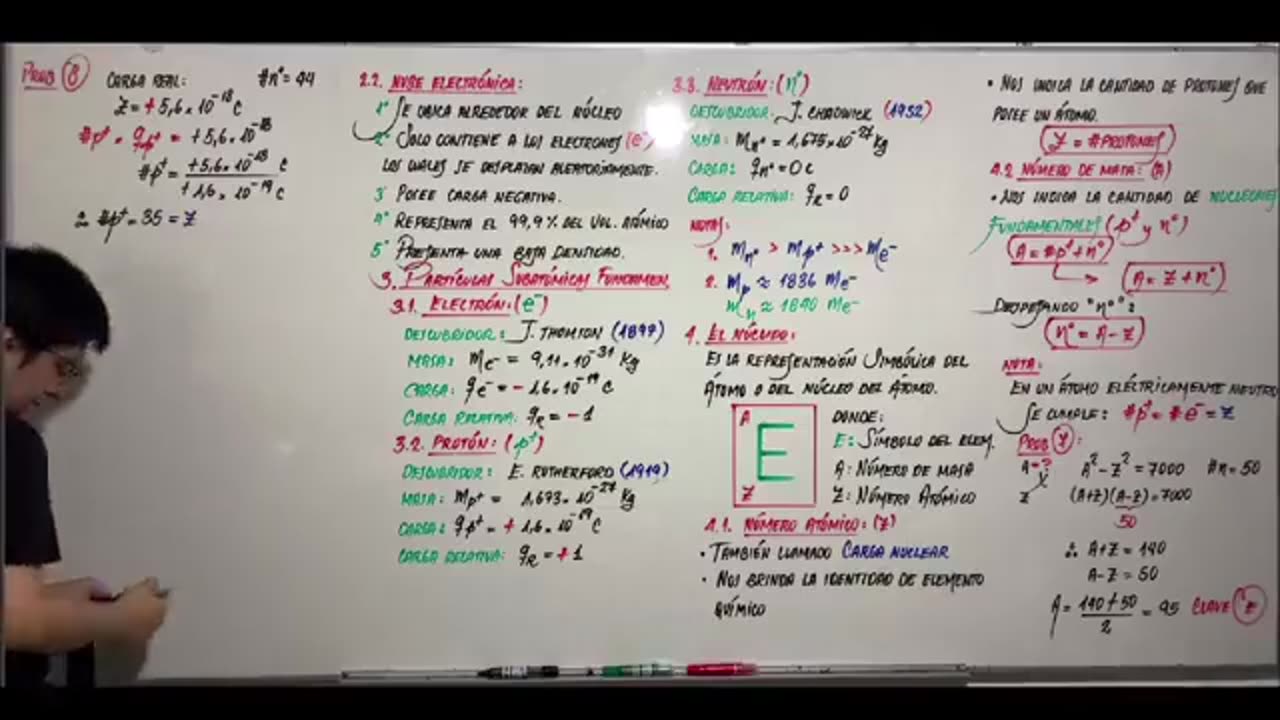 PROB 8 CARGA REAL: #n° = 44
Z = + 5,6 × 10⁻¹⁸ C
#p⁺ · qp⁺ = + 5,6 × 10⁻¹⁸
#p⁺ = +5,6 × 10⁻¹⁸ C
+ 1,6 × 10⁻¹⁹ C
∴ #p⁺ = 35 = Z
2.2. NUBE ELECTRÓNICA:
1° SE UBICA ALREDEDOR DEL NÚCLEO
2° SOLO CONTIENE A LOS ELECTRONES (e⁻)
LOS CUALES SE DESPLAZAN ALEATORIAMENTE.
3° POCEE CARGA NEGATIVA.
4° REPRESENTA EL 99,9% DEL VOL. ATÓMICO
5° PRESENTA UNA BAJA DENSIDAD.
3. PARTÍCULAS SUBATÓMICAS FUNDAMEN.
3.1. ELECTRÓN: (e⁻)
DESCUBRIDOR: J. THOMSON (1897)
MASA: Me⁻ = 9,11 × 10⁻³¹ Kg
CARGA: qe⁻ = - 1,6 × 10⁻¹⁹ C
CARGA RELATIVA: qR = - 1
3.2. PROTÓN: (p⁺)
DESCUBRIDOR: E. RUTHERFORD (1919)
MASA: Mp⁺ = 1,673 × 10⁻²⁷ Kg
CARGA: qp⁺ = + 1,6 × 10⁻¹⁹ C
CARGA RELATIVA: qR = + 1
3.3. NEUTRÓN: (n°)
DESCUBRIDOR: J. CHADWICK (1932)
MASA: Mn° = 1,675 × 10⁻²⁷ Kg
CARGA: qn° = 0 C
CARGA RELATIVA: qR = 0
NOTAS:
1. Mn° > Mp⁺ >>> Me⁻
2. Mp ≈ 1836 Me⁻
Mn ≈ 1840 Me⁻
4. EL NÚCLIDO:
ES LA REPRESENTACIÓN SIMBÓLICA DEL
ÁTOMO O DEL NÚCLEO DEL ÁTOMO.
A E Z
DONDE:
E: SÍMBOLO DEL ELEM.
A: NÚMERO DE MASA
Z: NÚMERO ATÓMICO
4.1. NÚMERO ATÓMICO: (Z)
• TAMBIÉN LLAMADO CARGA NUCLEAR
• NOS BRINDA LA IDENTIDAD DE ELEMENTO
QUÍMICO
• NOS INDICA LA CANTIDAD DE PROTONES QUE
POCEE UN ÁTOMO.
Z = #PROTONES
4.2 NÚMERO DE MASA: (A)
• NOS INDICA LA CANTIDAD DE NUCLEONES
FUNDAMENTALES (p⁺ y n°)
A = #p⁺ + n°
A = Z + n°
DESPEJANDO "n°":
n° = A - Z
NOTA:
EN UN ÁTOMO ELÉCTRICAMENTE NEUTRO
SE CUMPLE: #p⁺ = #e⁻ = Z
PROB 7:
A = ? A² - Z² = 7000 #n = 50
Z (A+Z)(A-Z) = 7000
50
∴ A+Z = 140
A-Z = 50
A = 140 + 50 = 95 CLAVE
2